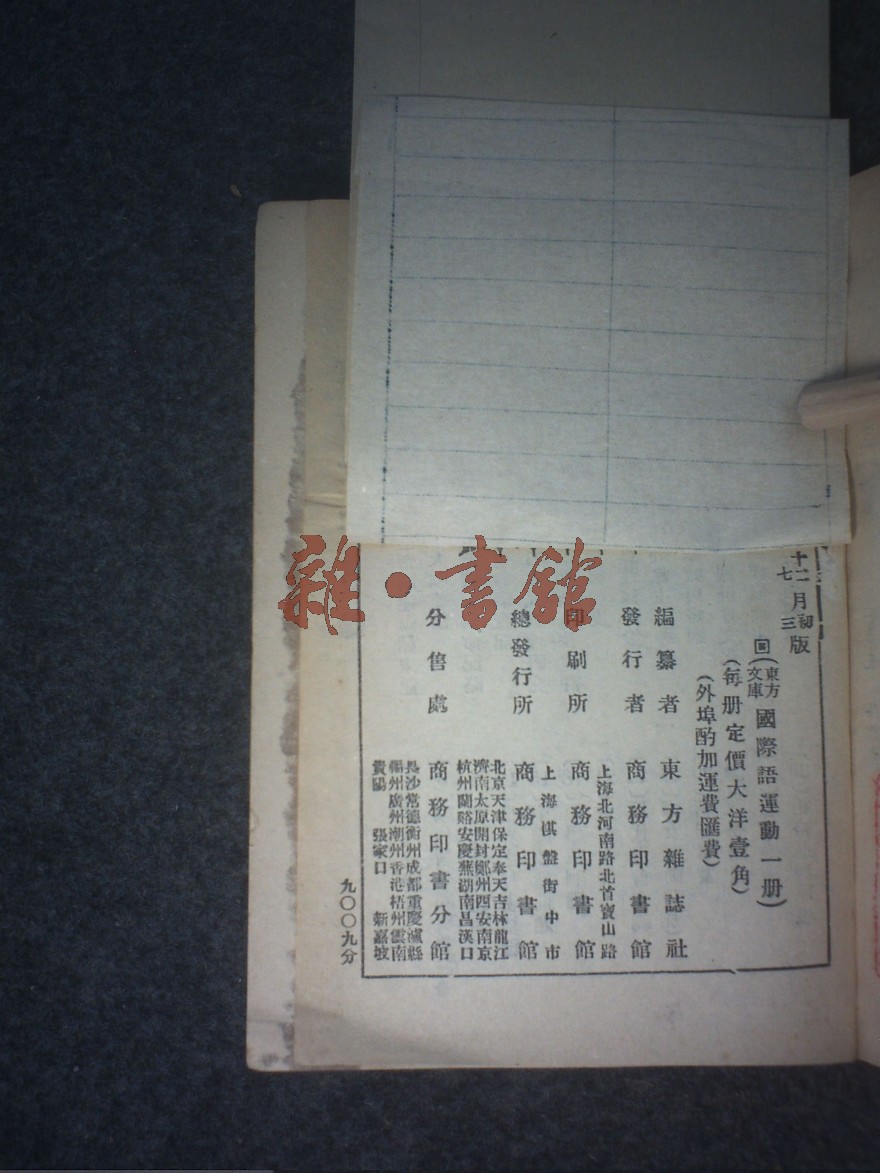 十二月初版
七 三
回(東方文庫)國際語運動一冊)
(每册定價大洋壹角)
(外埠酌加運費匯費)
編纂者 東方雜誌社
發行者 商務印書館
上海北河南路北首寶山路
印刷所 商務印書館
上海棋盤街中市
總發行所 商務印書館
北京天津保定奉天吉林龍江
濟南太原開封鄭州西安南京
杭州蘭谿安慶蕪湖南昌漢口
分售處 商務印書分館
長沙常德衡州成都重慶瀘縣
福州廣州潮州香港梧州雲南
貴陽 張家口 新嘉坡
九〇〇九分
雜·書館